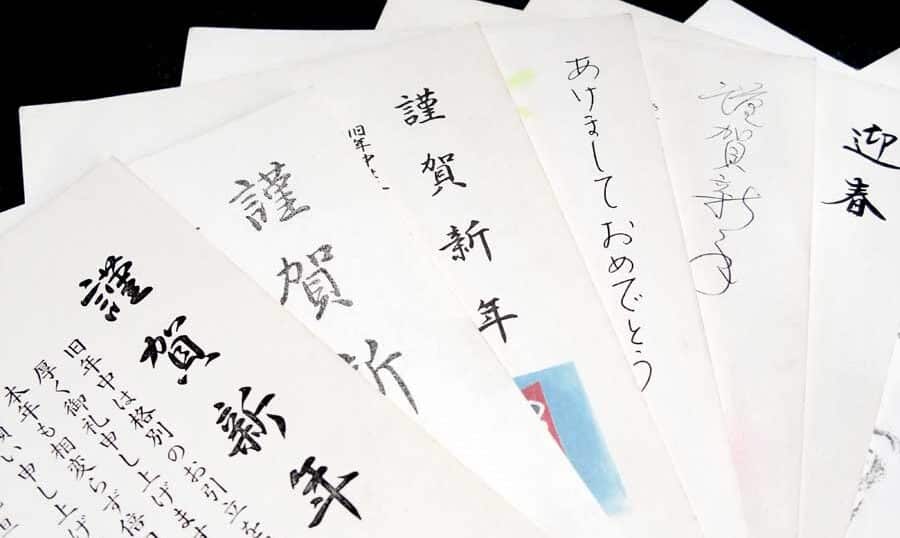 謹賀新年
旧年中は格別のお引立を
厚く御礼申し上げます
本年も相変らず倍
願い申し上げ
謹賀新
謹賀新年
旧年中
あけましておめでとう
謹賀新年
迎春